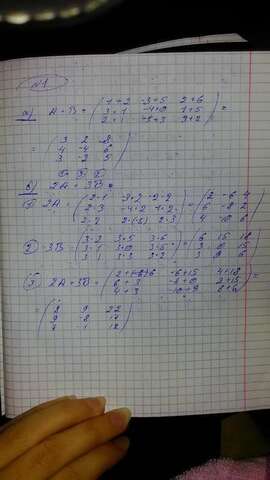 №1
а) A + B = (1+2 -3+5 2+6
3+1 -4+0 1+5
2+1 -5+3 3+2) =
= (3 2 8
4 -4 6
3 -2 5)
2A + 3B
1) 2A = (2·1
2·3 -4·2 1·2
2·2 2·(-5) 2·3) = (2 -6 4
6 -8 2
4 -10 6)
2) 3B = (3·2 3·5 3·6
3·1 3·0 3·5
3·1 3·3 3·2) = (6 15 18
3 0 15
3 9 6)
3) 2A + 3B = (-6+15 4+18
6+3 -8+0 2+15
4+3 6+6) =
= (8 9 22
9 -8 17
7 1 12)